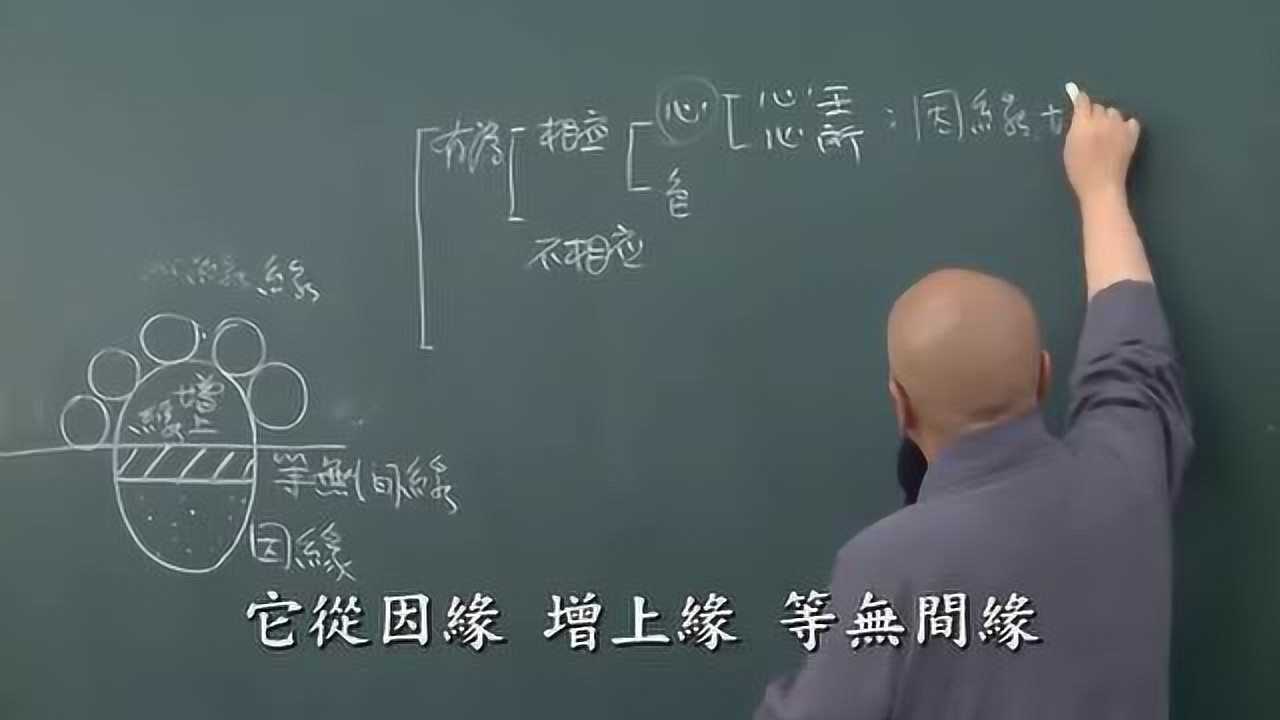 心王
心 心所 : 因緣
有為 相應
色
不相應
緣
增上
緣
等無間緣
因緣
它從因緣 增上緣 等無間緣